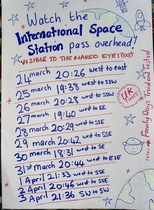 Watch the
International Space
Station pass overhead!
VISIBLE TO THE NAKED EYE!
24 march 20:26 west to east
25 march 19:38 west to SSW
26 march 20:28 west to SSW
27 march 19:40 west to
28 march 20:29 west to SSE
29 march 19:42 west to SSE
30 march west to SE
31st march 20:44 west to ESE
1 April 21:33 west to
2 April 20:46 west to
3 April 21:36 SW to SW
UK
Tried and Tested